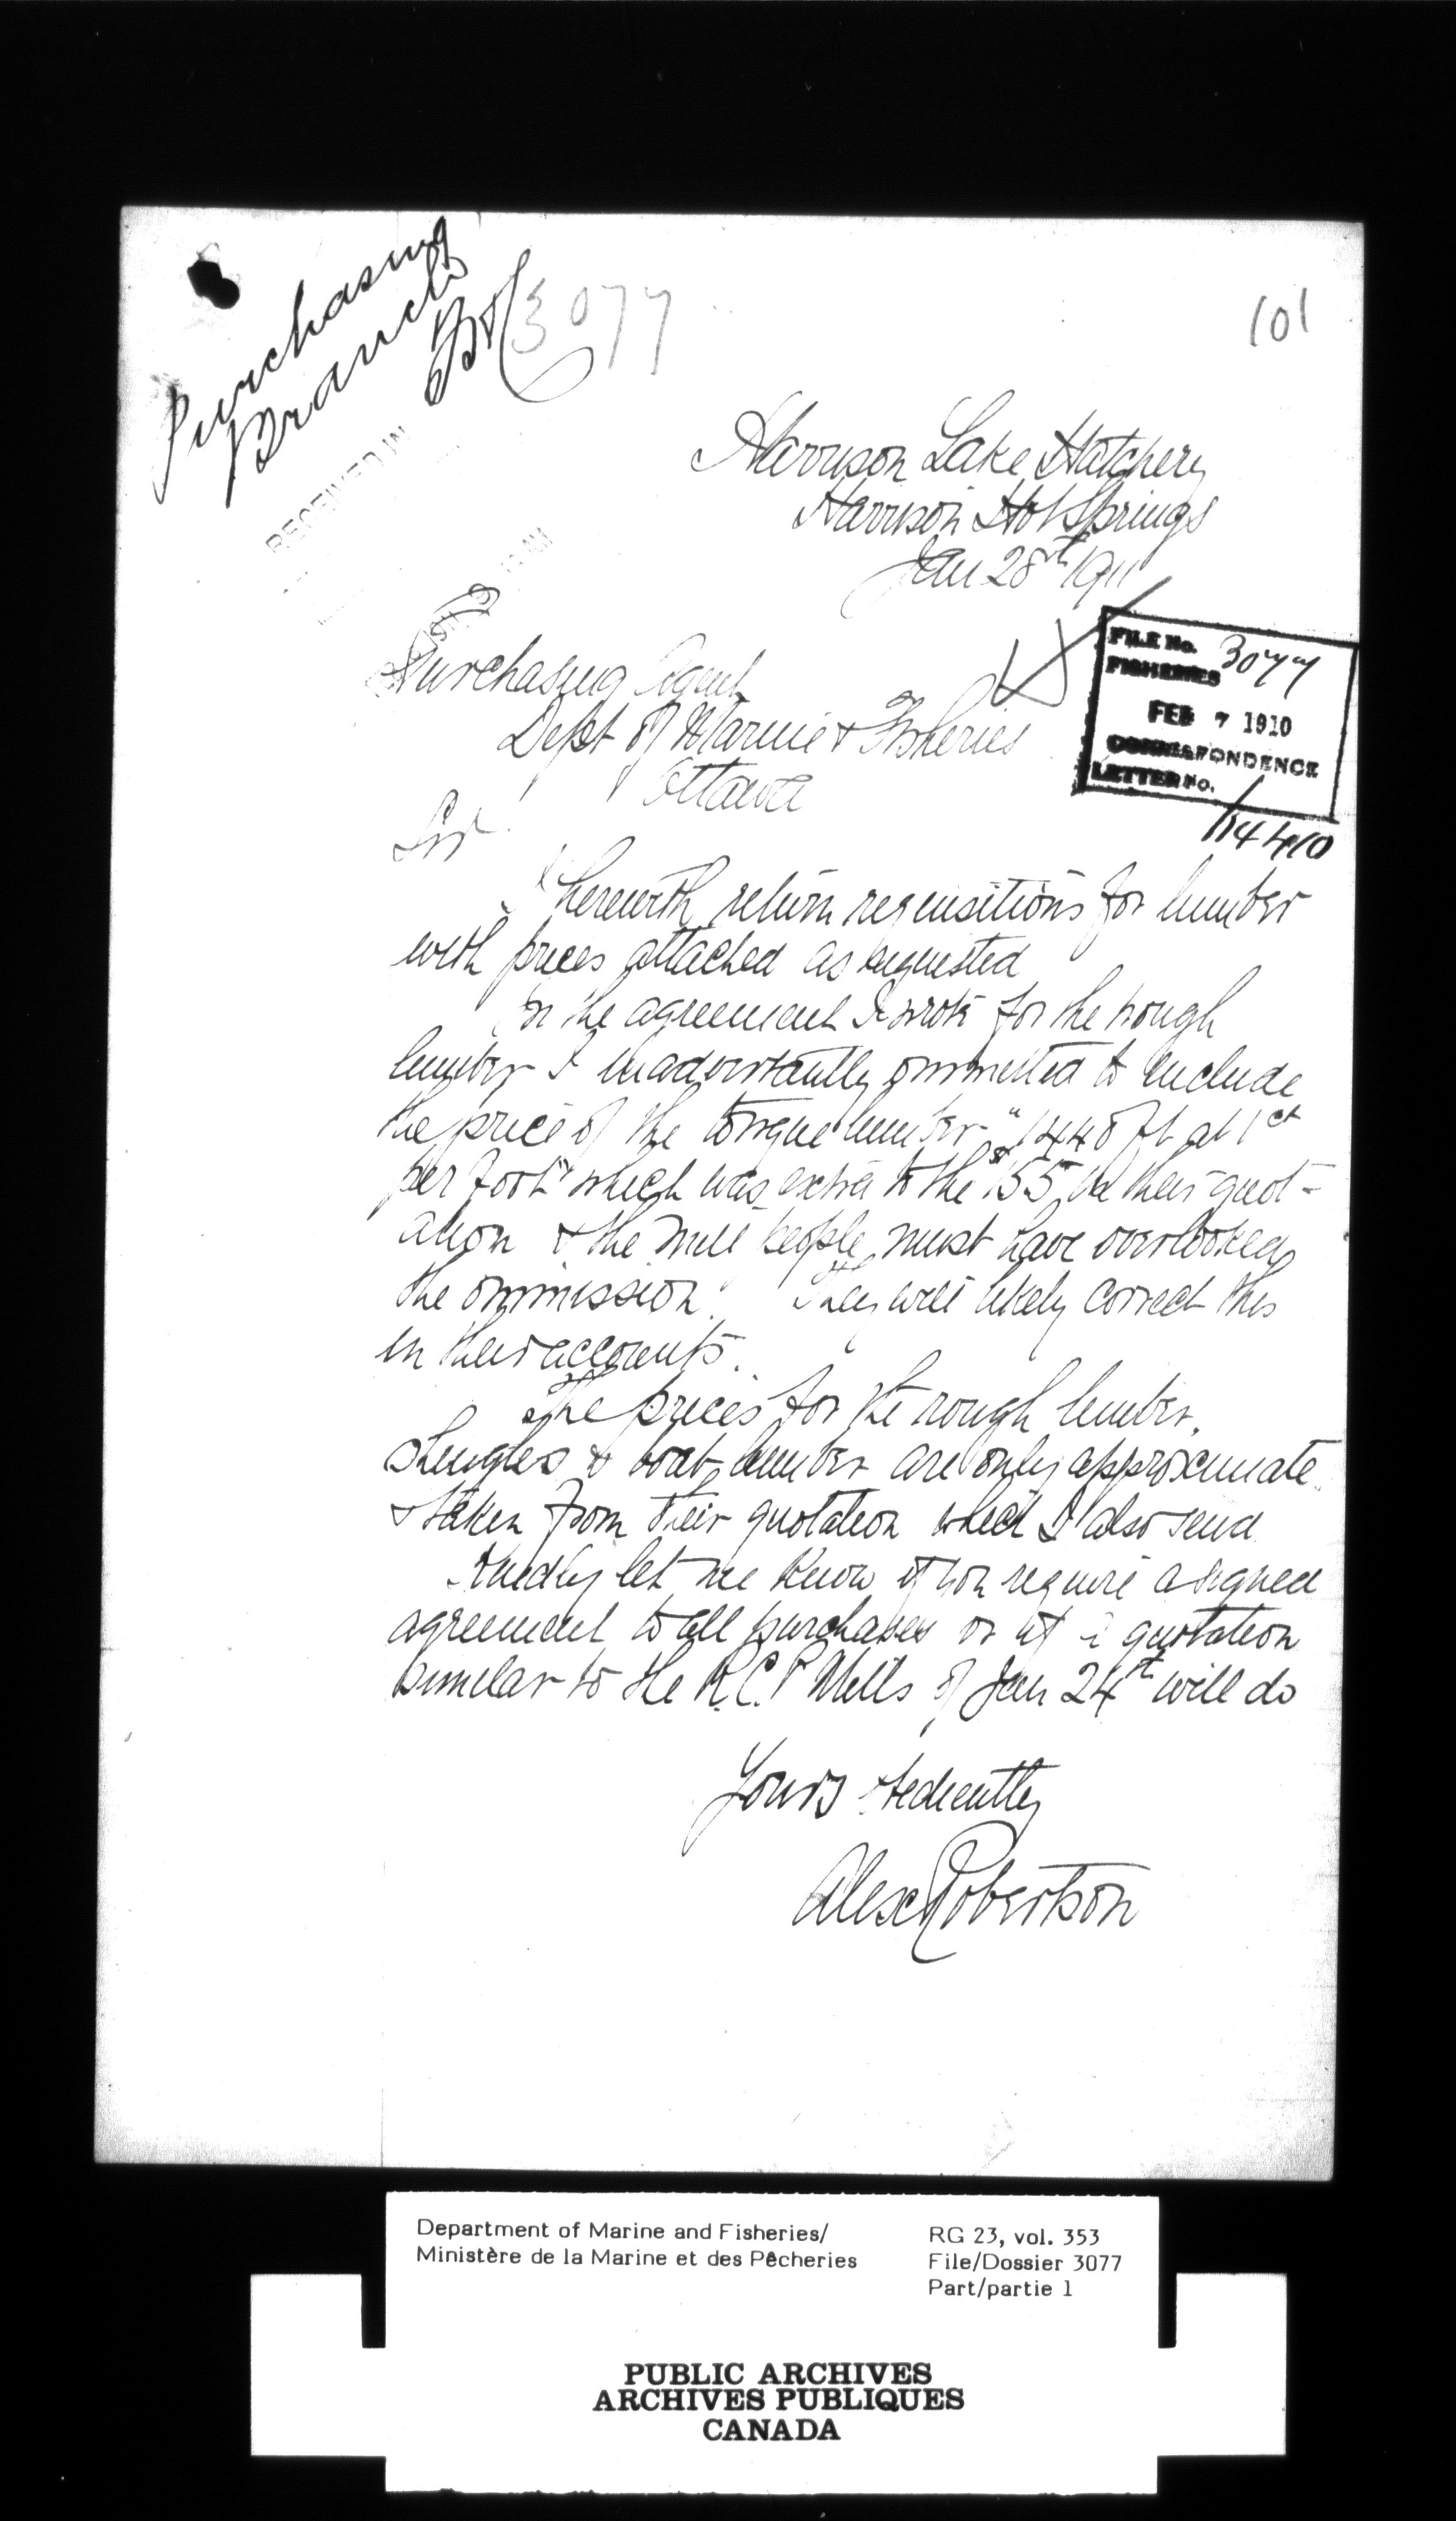 Purchasing
Branch
3077
101
RECEIVED IN
Harrison Lake Hatchery
Harrison Hot Springs
Jan 28th 1911
Purchasing Agent
Dept of Marine & Fisheries
Ottawa
FILE No. 3077
FISHERIES
FEB 7 1910
CORRESPONDENCE
LETTER No.
14410
Sir
I herewith return requisitions for lumber
with prices attached as requested
In the agreement I wrote for the rough
lumber I inadvertantly ommitted to include
the price of the tongue lumber "1440 ft at 1ct
per foot" which was extra to the $155 in their quot-
ation & the mill people must have overlooked
the ommission. They will likely correct this
in their accounts.
The prices for the rough lumber,
shingles & boat lumber are only approximate
& taken from their quotation which I also send
Kindly let me know if you require a signed
agreement to all purchases or if a quotation
similar to the R.C.P. Mills of Jan 24th will do
Yours obediently
Alex Robertson
Department of Marine and Fisheries/
Ministère de la Marine et des Pêcheries
RG 23, vol. 353
File/Dossier 3077
Part/partie 1
PUBLIC ARCHIVES
ARCHIVES PUBLIQUES
CANADA